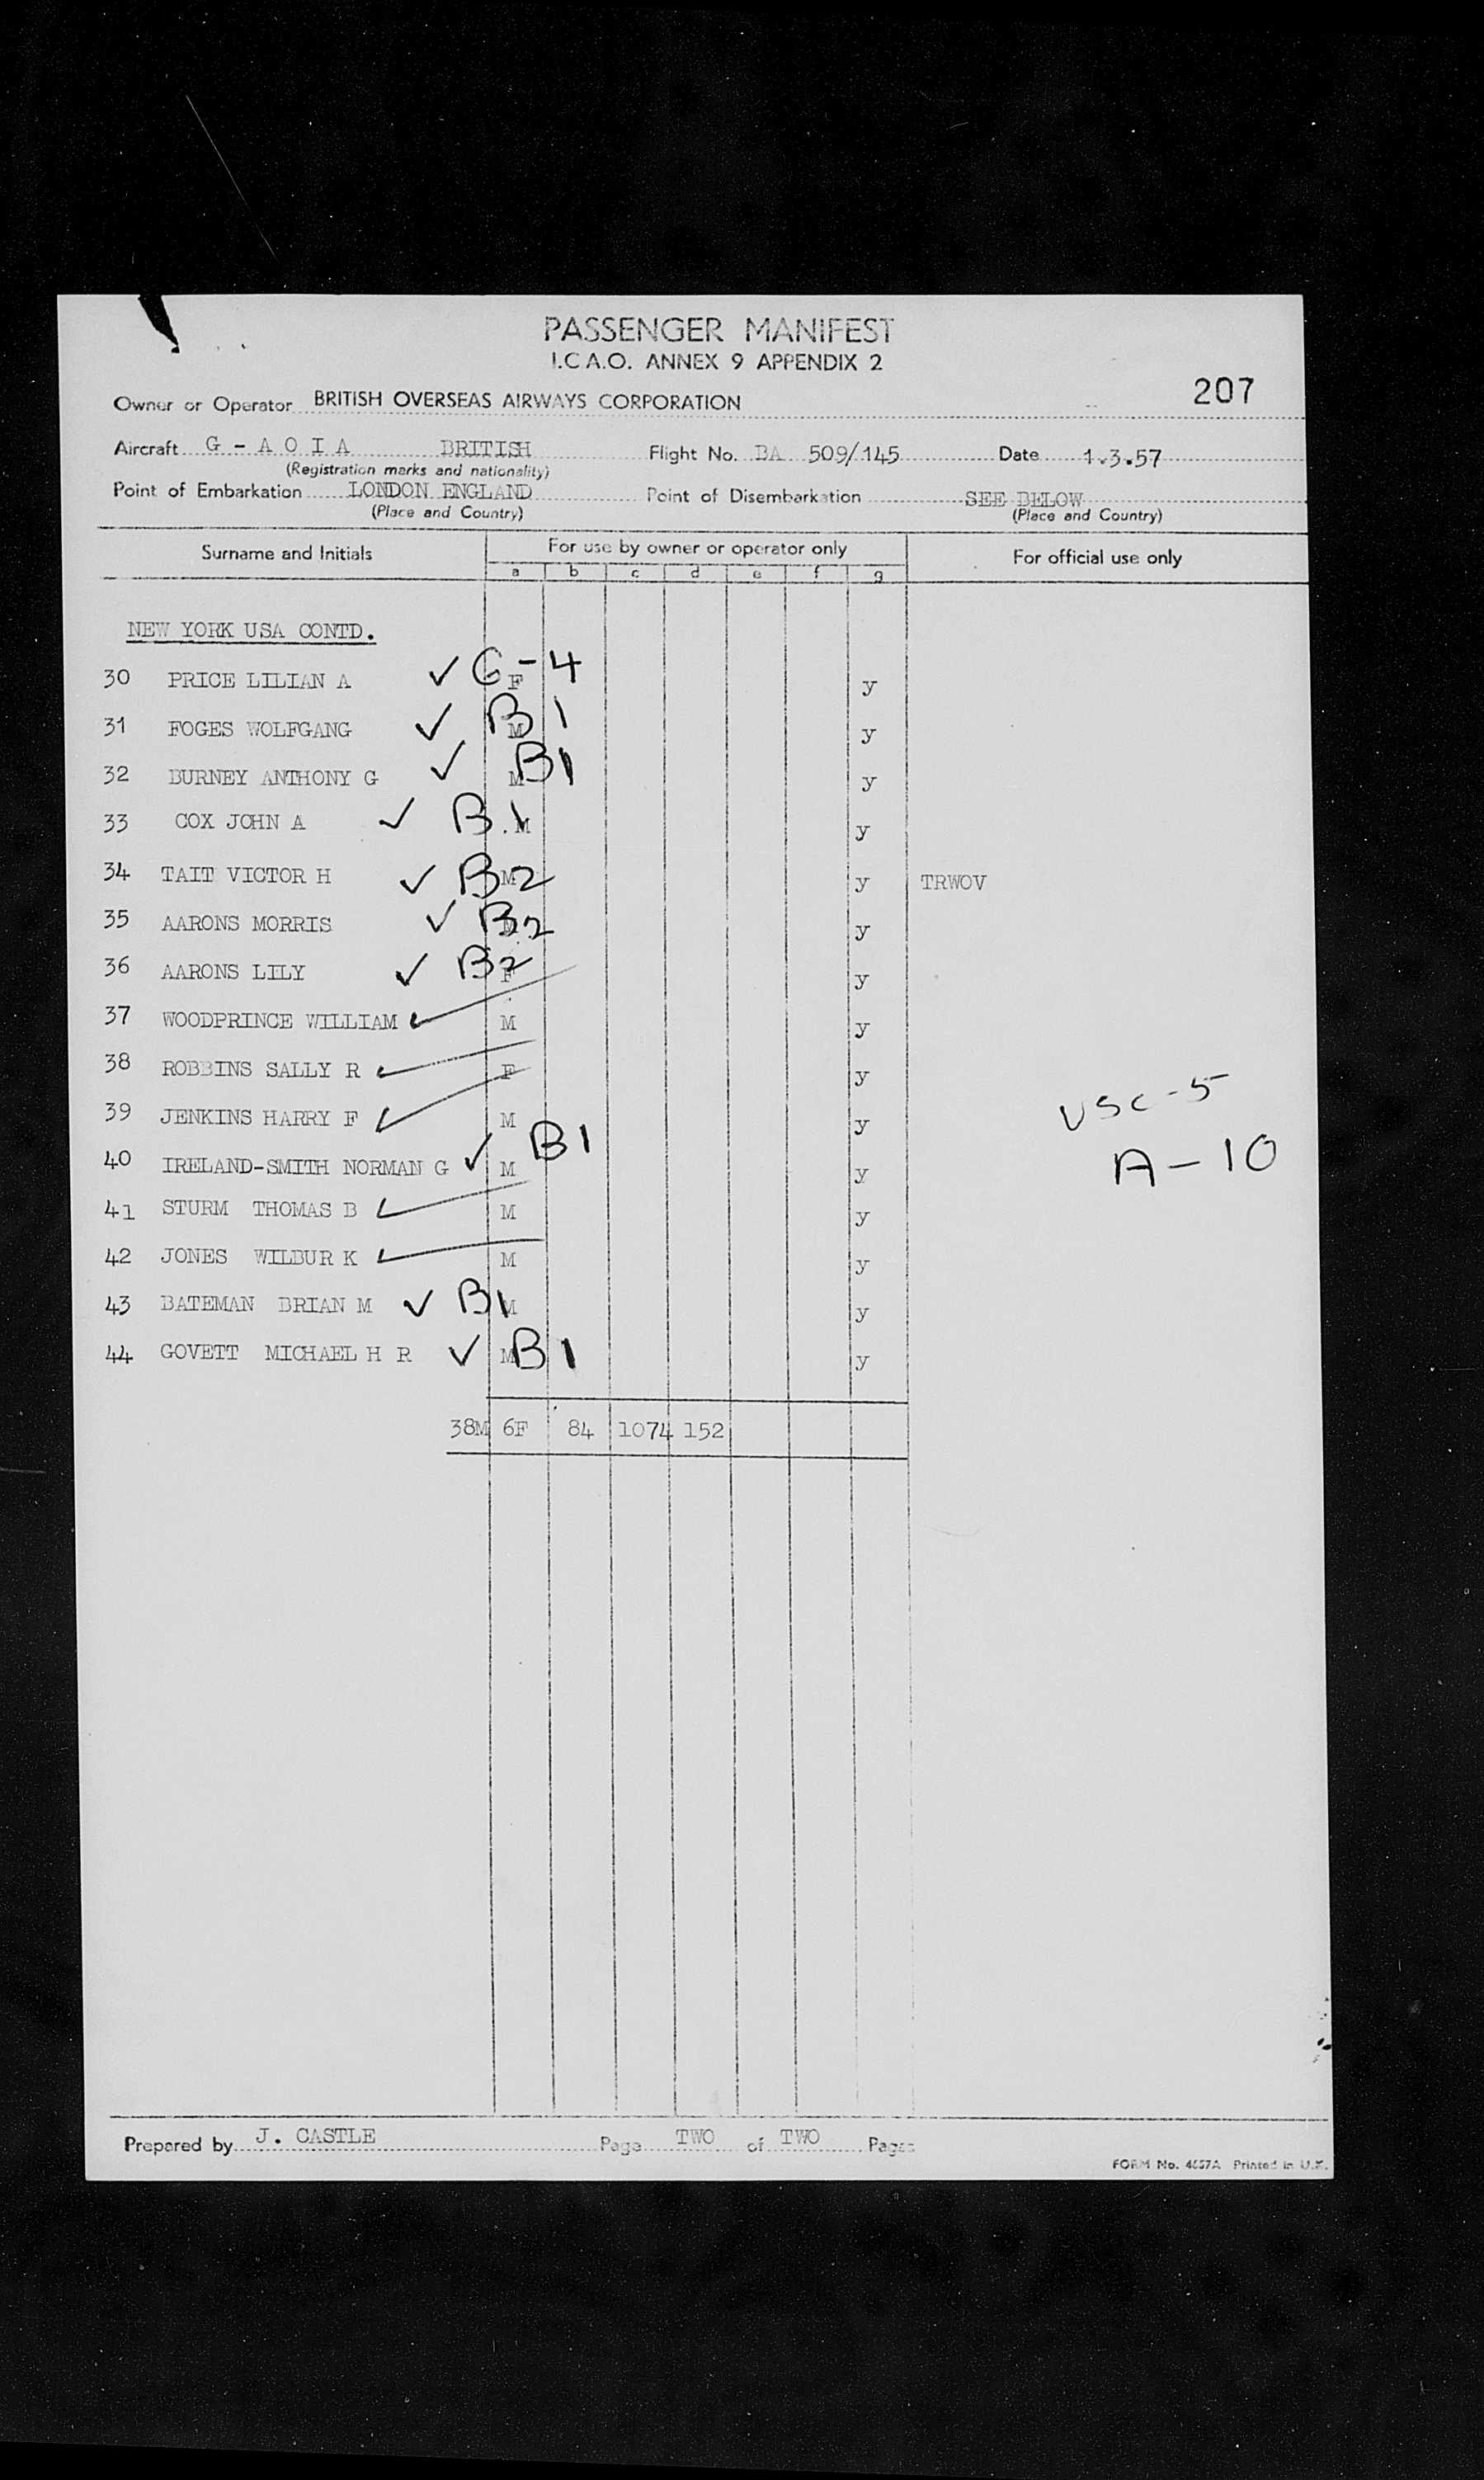 PASSENGER MANIFEST
I.C.A.O. ANNEX 9 APPENDIX 2
207
Owner or Operator BRITISH OVERSEAS AIRWAYS CORPORATION
Aircraft G - A O I A BRITISH Flight No. BA 509/145 Date 1.3.57
(Registration marks and nationality)
Point of Embarkation LONDON ENGLAND Point of Disembarkation SEE BELOW
(Place and Country) (Place and Country)
Surname and Initials For use by owner or operator only For official use only
a b c d e f g
NEW YORK USA CONTD.
30 PRICE LILIAN A ✓ G-4 F y
31 FOGES WOLFGANG ✓ B1 M y
32 BURNEY ANTHONY G ✓ B1 M y
33 COX JOHN A ✓ B1 M y
34 TAIT VICTOR H ✓ B2 M y TRWOV
35 AARONS MORRIS ✓ B2 y
36 AARONS LILY ✓ B2 F y
37 WOODPRINCE WILLIAM ✓ M y
38 ROBBINS SALLY R ✓ F y
39 JENKINS HARRY F ✓ M y
USC-5
40 IRELAND-SMITH NORMAN G ✓ M B1 y
A-10
41 STURM THOMAS B ✓ M y
42 JONES WILBUR K ✓ M y
43 BATEMAN BRIAN M ✓ B1 M y
44 GOVETT MICHAEL H R ✓ M B1 y
38M 6F 84 1074 152
Prepared by J. CASTLE Page TWO of TWO Pages
FORM No. 4657A Printed in U.K.